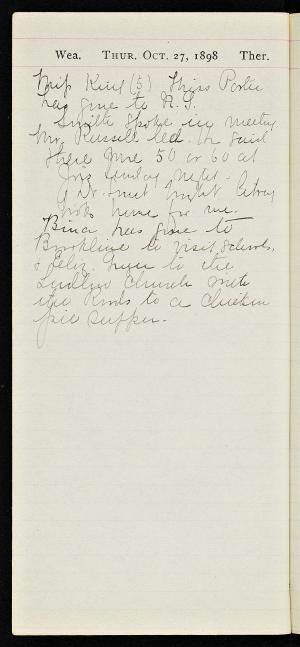 Wea. THUR. OCT. 27, 1898 Ther.
Miss King (5) Miss Porter
has gone to N. Y.
Smith spoke in meeting
Mr. Russell led. He said
there were 50 or 60 at
Sunday night.
night
home for me.
Bina has gone to
Brookline to visit schools.
& Eliz. to the
Ludlow Church with
the Rords to a Chicken
pie supper.